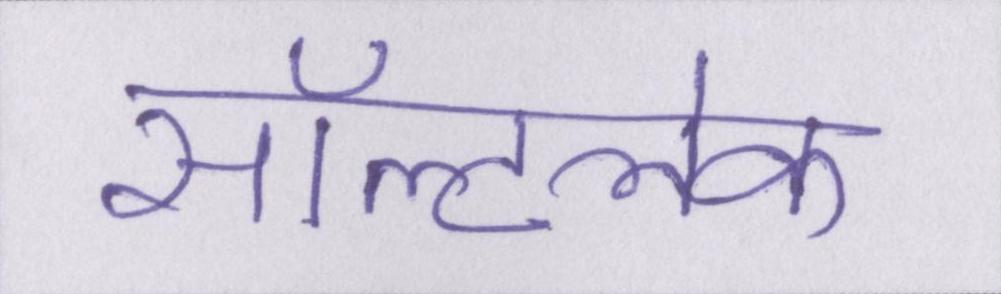 सॉल्टलेक